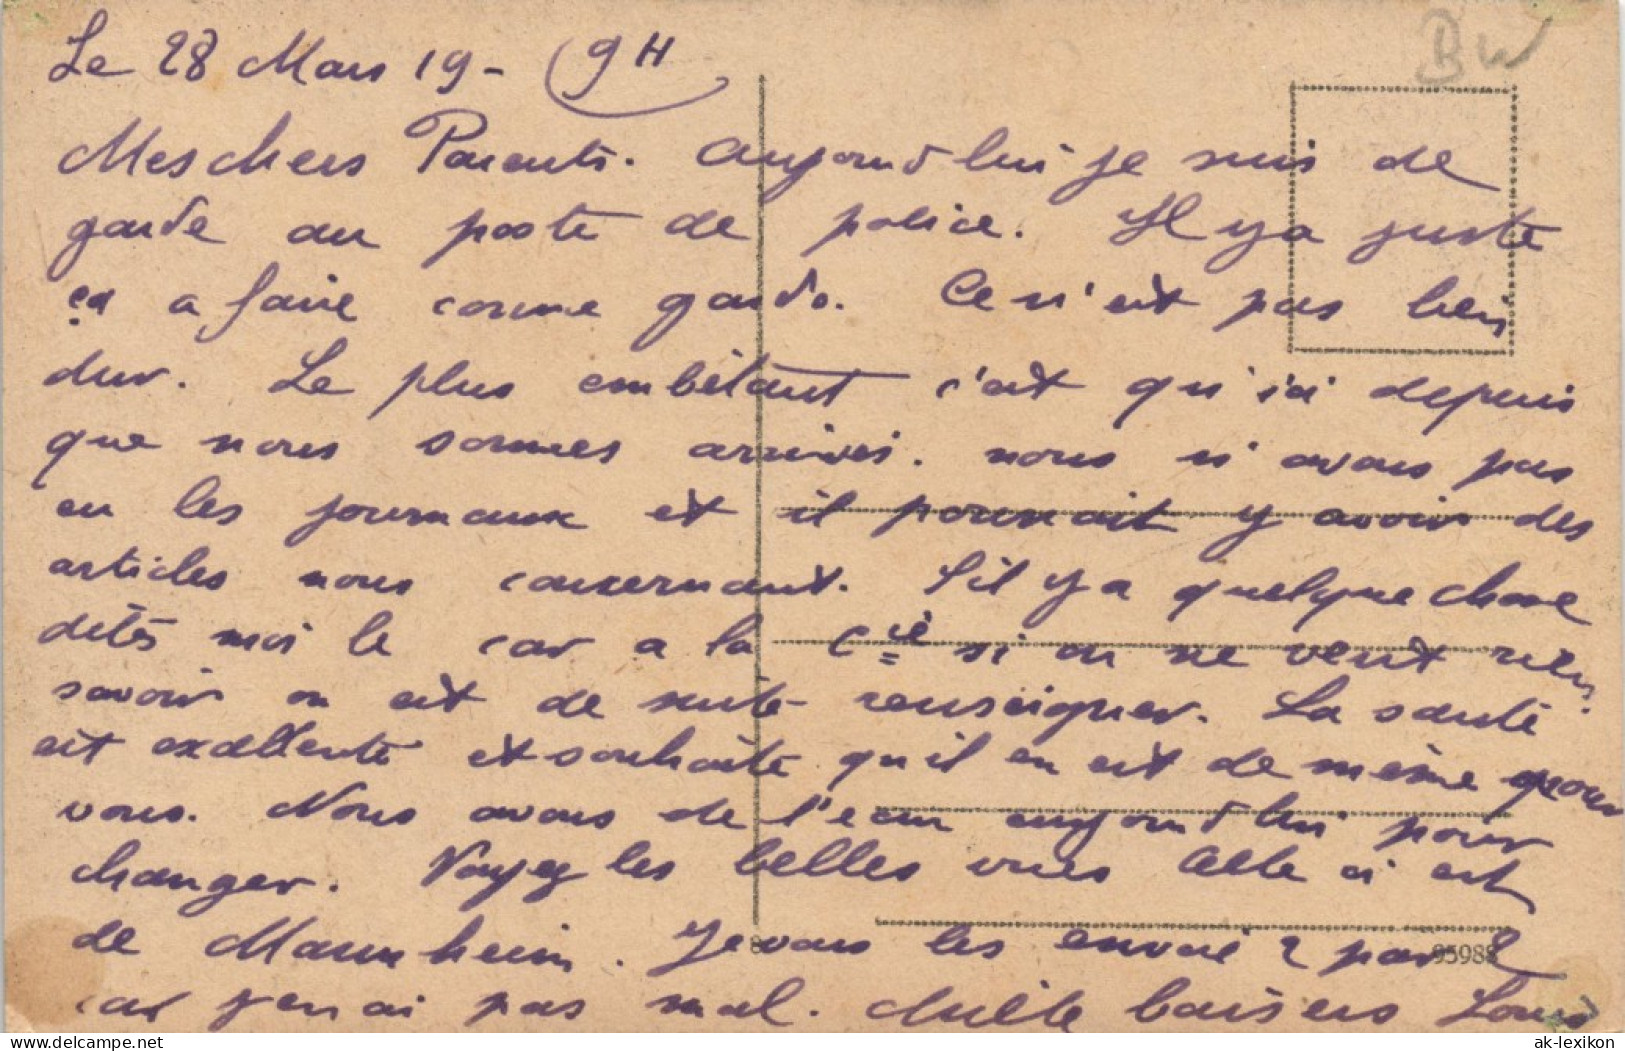 Le 28 Mars 19 - 9H
BW
Mes chers Parents. Aujourd'hui je suis de
garde au poste de police. Il y a juste
ça a faire comme garde. Ce n'est pas bien
dur. Le plus embêtant c'est qu'ici depuis
que nous sommes arrivés. nous n'avons pas
eu les journaux et il pourrait y avoir des
articles nous concernant. S'il y a quelque chose
dites moi le car a la Cie si on ne veut rien
savoir on est de suite renseigner. La santé
est excellente et souhaite qu'il en est de même pour
vous. Nous avons de l'eau aujourd'hui pour
changer. Voyez les belles vues Celle ci est
de Mannheim. Je vous les envoie 2 par 2
95988
car j'en ai pas mal. Mille baisers Louis
hippostcard.com
ak-lexikon